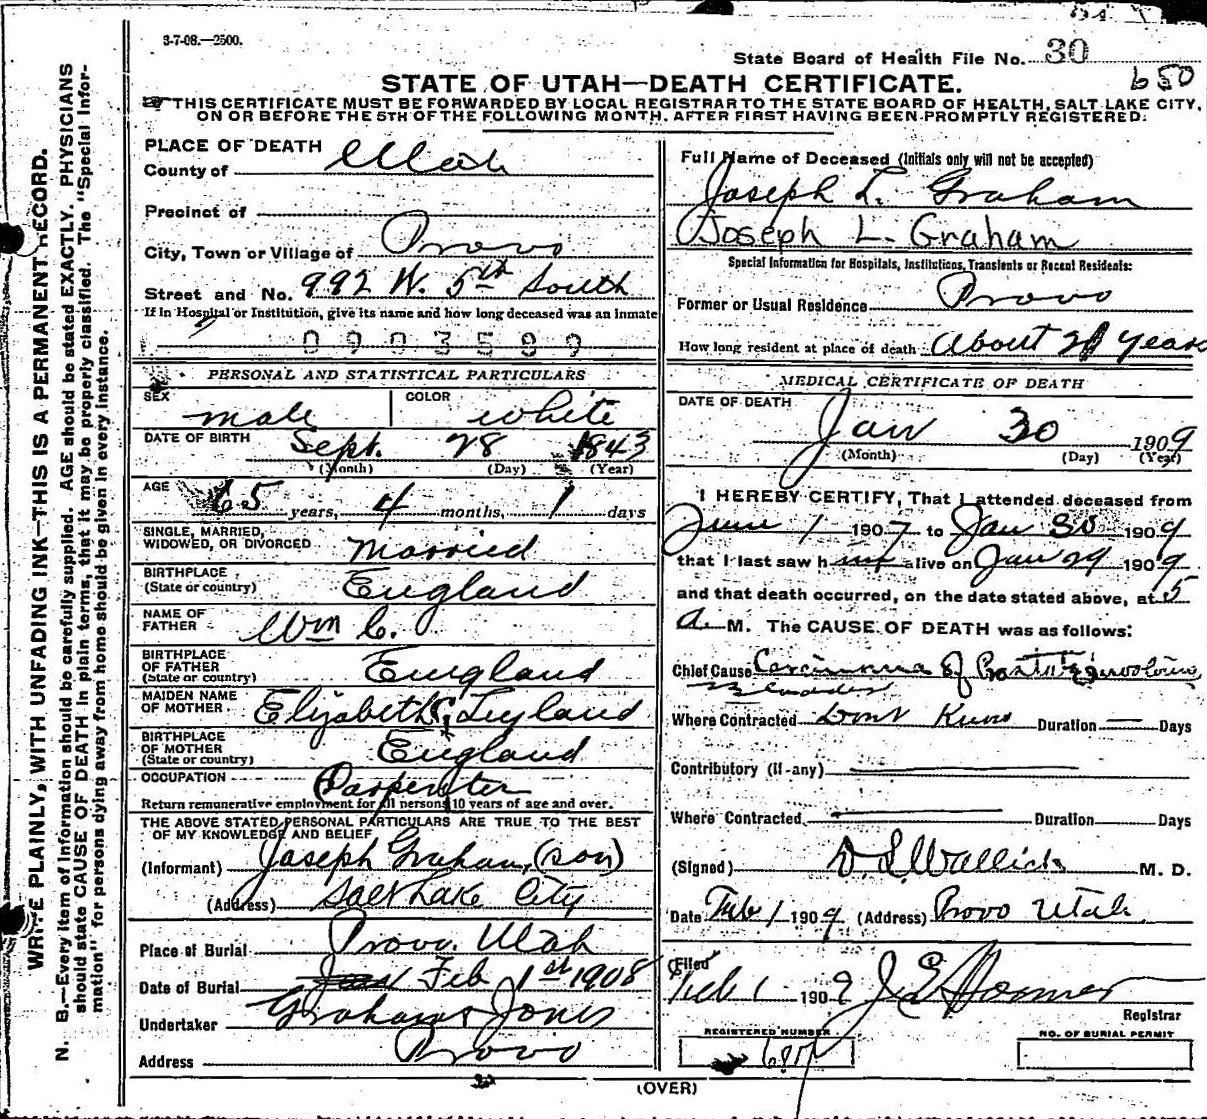 3-7-08.—2500.
State Board of Health File No. 30
650
STATE OF UTAH—DEATH CERTIFICATE.
THIS CERTIFICATE MUST BE FORWARDED BY LOCAL REGISTRAR TO THE STATE BOARD OF HEALTH, SALT LAKE CITY,
ON OR BEFORE THE 5TH OF THE FOLLOWING MONTH, AFTER FIRST HAVING BEEN PROMPTLY REGISTERED:
WRITE PLAINLY, WITH UNFADING INK—THIS IS A PERMANENT RECORD.
N. B.—Every item of information should be carefully supplied. AGE should be stated EXACTLY. PHYSICIANS
should state CAUSE OF DEATH in plain terms, that it may be properly classified. The "Special Infor-
mation" for persons dying away from home should be given in every instance.
PLACE OF DEATH
County of Utah
Precinct of
City, Town or Village of Provo
Street and No. 992 W. 5th South
If in Hospital or Institution, give its name and how long deceased was an inmate
0903599
PERSONAL AND STATISTICAL PARTICULARS
SEX male COLOR white
DATE OF BIRTH Sept. 28 1843
(Month) (Day) (Year)
AGE 65 years, 4 months, 1 days
SINGLE, MARRIED,
WIDOWED, OR DIVORCED Married
BIRTHPLACE
(State or country) England
NAME OF
FATHER Wm C.
BIRTHPLACE
OF FATHER
(State or country) England
MAIDEN NAME
OF MOTHER Elizabeth Leyland
BIRTHPLACE
OF MOTHER
(State or country) England
OCCUPATION Carpenter
Return remunerative employment for all persons 10 years of age and over.
THE ABOVE STATED PERSONAL PARTICULARS ARE TRUE TO THE BEST
OF MY KNOWLEDGE AND BELIEF
(Informant) Joseph Graham, (son)
(Address) Salt Lake City
Place of Burial Provo. Utah
Date of Burial Jan Feb 1st 1908
Undertaker Graham & Jones
Address Provo
Full Name of Deceased (Initials only will not be accepted)
Joseph L. Graham
Joseph L. Graham
Special Information for Hospitals, Institutions, Transients or Recent Residents:
Former or Usual Residence Provo
How long resident at place of death About Years
MEDICAL CERTIFICATE OF DEATH
DATE OF DEATH
Jan 30 1909
(Month) (Day) (Year)
I HEREBY CERTIFY, That I attended deceased from
June 1 1907 to Jan 30 1909
that I last saw him alive on Jan 29 1909
and that death occurred, on the date stated above, at 5
a. M. The CAUSE OF DEATH was as follows:
Chief Cause Carcinoma of Prostate & involving
Bladder
Where Contracted Dont Know Duration — Days
Contributory (if any)
Where Contracted Duration Days
(Signed) D. L. Wallick M. D.
Date Feb 1 1909 (Address) Provo Utah
Filed
Feb 1 1909 Registrar
REGISTERED NUMBER
NO. OF BURIAL PERMIT
(OVER)